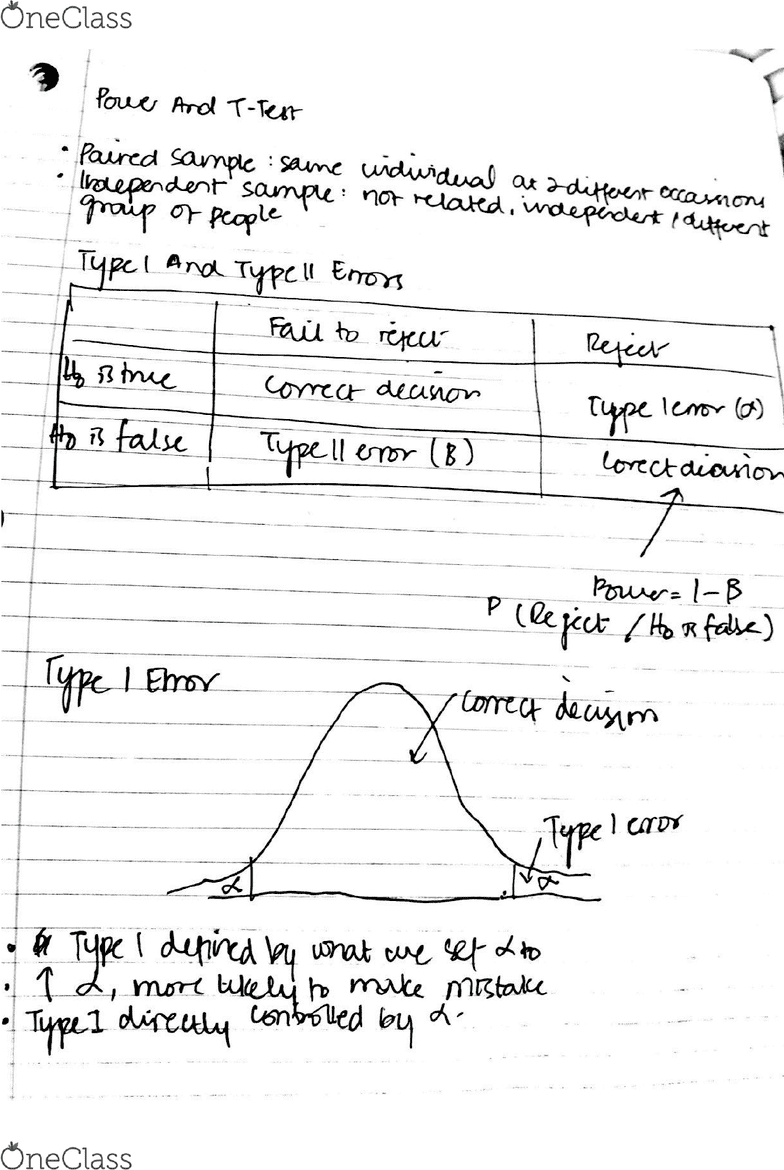 OneClass
Power And T-Test
• Paired sample : same individual at 2 different occassions
• Independent sample : not related, independent / different
group of people
Type I And Type II Errors
Fail to reject Reject
H0 is true Correct decision Type I error (α)
H0 is false Type II error (B) Correct decision
Power = 1 - B
P (Reject / H0 is false)
Type I Error
Correct decision
Type I error
α α
• Type I defined by what we set α to
• ↑ α, more likely to make mistake
• Type I directly controlled by α.
OneClass